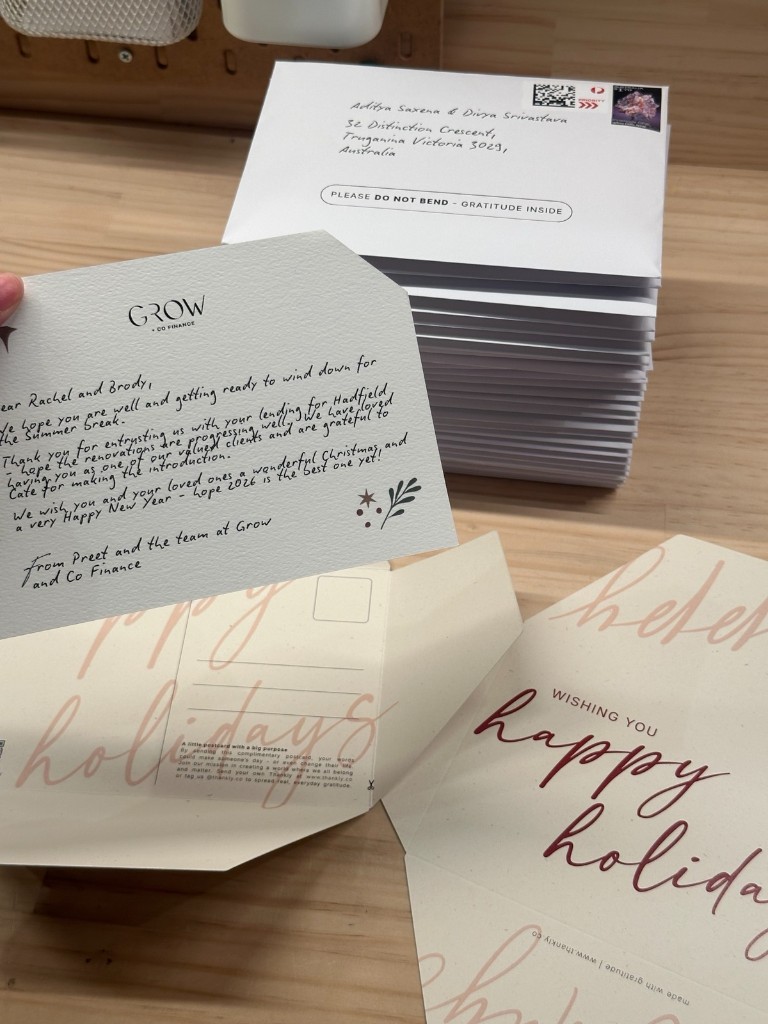 PRIORITY
Aditya Saxena & Divya Srivastava
32 Distinction Crescent,
Truganina Victoria 3029,
Australia
PLEASE DO NOT BEND - GRATITUDE INSIDE
GROW
+ CO FINANCE
ear Rachel and Brody,
We hope you are well and getting ready to wind down for
the Summer break.
Thank you for entrusting us with your lending for Hadfield
- hope the renovations are progressing well! We have loved
having you as one of our valued clients and are grateful to
Cate for making the introduction.
We wish you and your loved ones a wonderful Christmas and
a very Happy New Year - hope 2026 is the best one yet!
From Preet and the team at Grow
and Co Finance
ppy
holidays
A little postcard with a big purpose
By sending this complimentary postcard, your words
could make someone's day - or even change their life.
Join our mission in creating a world where we all belong
and matter. Send your own Thankly at www.thankly.co
or tag us @thankly.co to spread feel, everyday gratitude.
WISHING YOU
happy
holida
made with gratitude | www.thankly.co